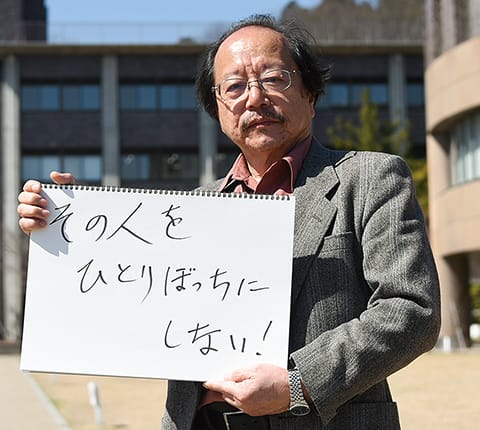 その人を
ひとりぼっちに
しない!